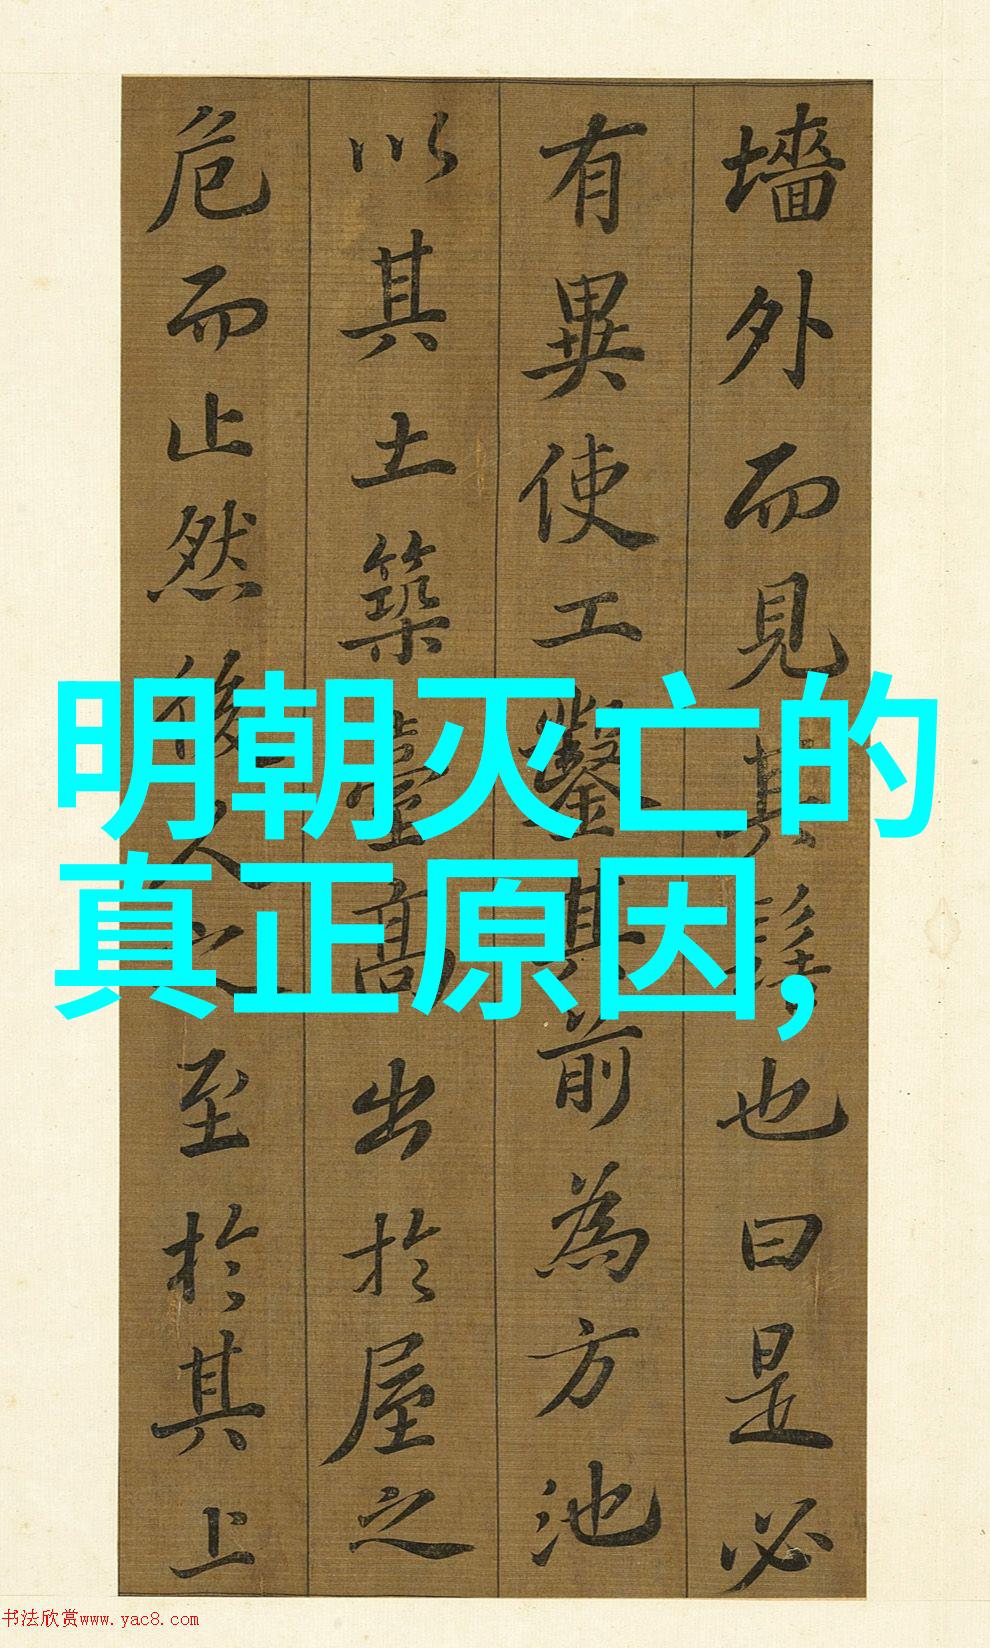 墻外而見其髻也曰是必
有異使工鑿其前為方池
以其土築臺高出於屋之
危而止然後人之至於其上
明朝灭亡的
真正原因,
书法欣赏www.yac8.com